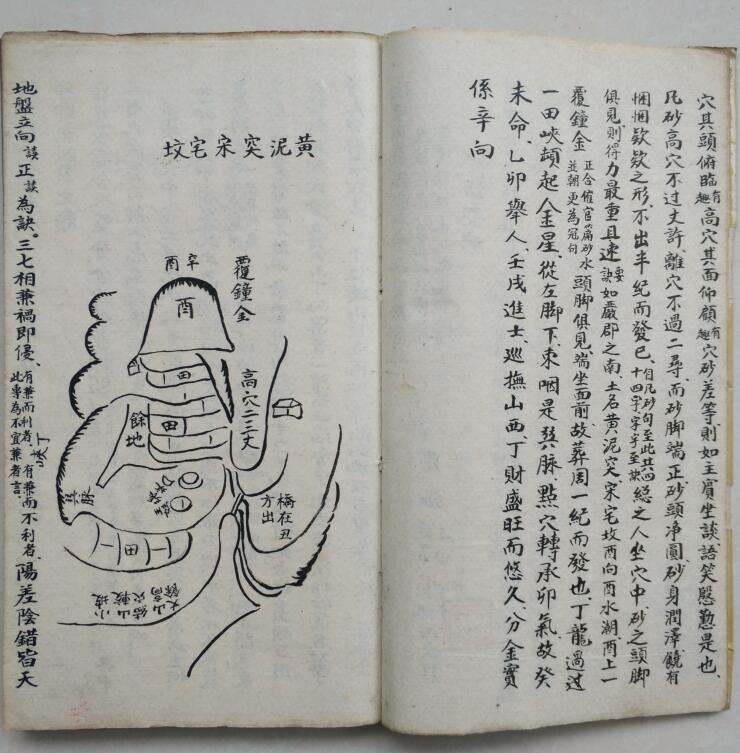 穴其頭俯臨有趣高穴其面仰顧有趣穴砂差等則如主賓坐談語笑慇懃是也
凡砂高穴不过丈許離穴不過二尋而砂脚端正砂頭净圓砂身潤澤饒有
悃悃欵欵之形不出半紀而發已自凡砂句至此共四十四字字字至訣總之人坐穴中砂之頭脚
俱見則得力最重且速要訣如嚴郡之南土名黄泥突宋宅坟酉向酉水潮酉上一
覆鐘金正合催官篇砂水並朝更為冠句頭脚俱見端坐面前故葬周一紀而發也丁龍過迳
一田峽頓起金星從左脚下束咽是巽脉點穴轉承卯氣故癸
未命乙卯舉人壬戌進士巡撫山西丁財盛旺而悠久分金實
係辛向
黄泥突宋宅坟
覆鐘金
辛
酉
酉
高穴二三丈
田
田
餘地
巽脉
丁峽
橋在丑方出
田
小坡
結山穴較
大山高
餘
地盤立向談正談為訣。三七相兼禍即侵有兼而利者有兼而不利者此專為不宜兼者言陽差陰錯皆天